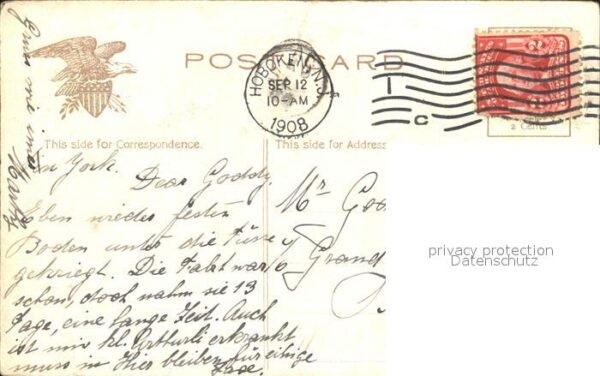 POST CARD
HOBOKEN, N.J.
SEP 12
10-AM
1908
1
C
2
2 Cents
This side for Correspondence.
This side for Address
in York.
Dear Goddy.
Eben wieder festen
Boden unter die Füsse
gekriegt. Die Fahrt war
schon, doch nahm sie 13
Tage, eine lange Zeit. Auch
ist mir kl. erkrankt
muss in Hier bleiben für einige
Tage.
Mr
Grand
privacy protection
Datenschutz